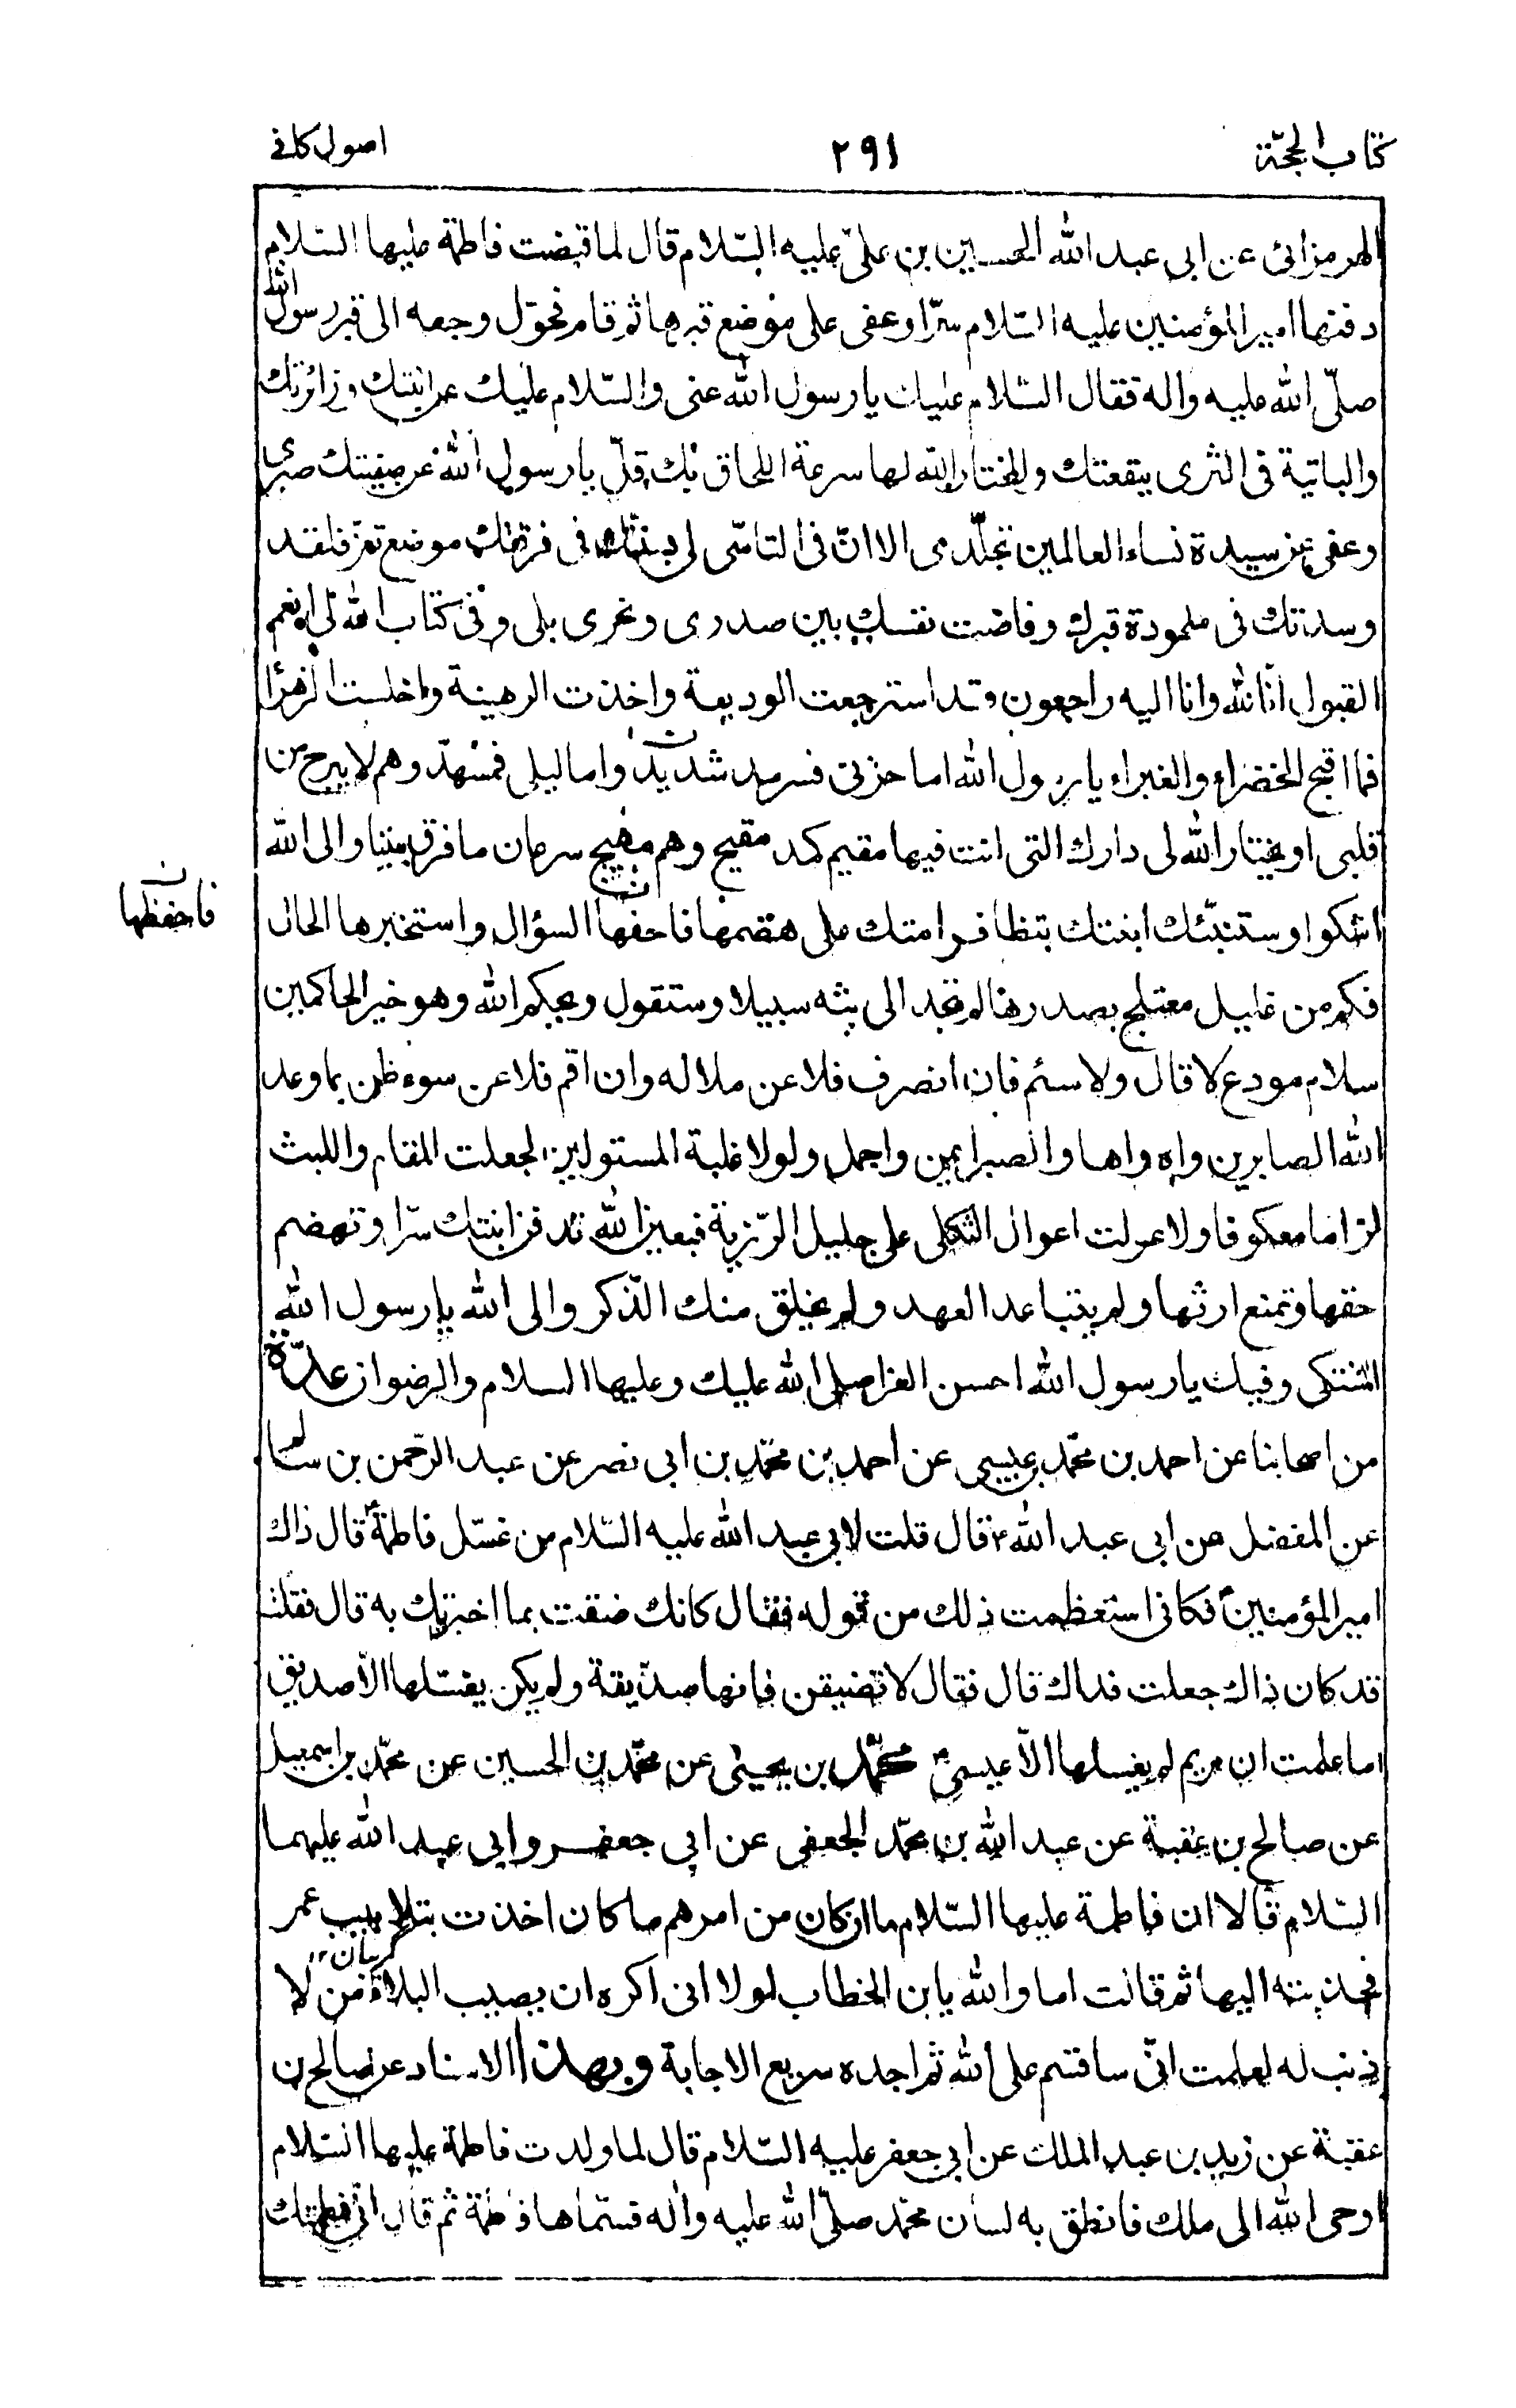 كتاب الحجّة
٢٩١
اصول كافى
الهرمزانى عن ابى عبد الله الحسين بن علىّ عليه السّلام قال لما قبضت فاطمة عليها السّلام
دفنها امير المؤمنين عليه السّلام سرّا وعفى على موضع قبرها ثم قام فحوّل وجهه الى قبر رسول الله
صلّى الله عليه واله فقال السّلام عليك يا رسول الله عنى والسّلام عليك عن ابنتك وزائرتك
والبائتة فى الثرى ببقعتك والمختار الله لها سرعة اللحاق بك قلّ يا رسول الله عن صفيتك صبرى
وعفى عن سيدة نساء العالمين تجلّدى الا انّ فى التاسّى لى بسنتك فى فرقتك موضع تعز فلقد
وسدتك فى ملحودة قبرك وفاضت نفسك بين صدرى ونحرى بلى وفى كتاب الله لى انعم
القبول انا لله وانا اليه راجعون قد استرجعت الوديعة واخذت الرهينة واخلست الزهرا
فما اقبح الخضراء والغبراء يا رسول الله اما حزنى فسرمد شديد واما ليلى فمسهّد وهم لا يبرح من
قلبى او يختار الله لى دارك التى انت فيها مقيم كمد مقيح وهم مهيج سرعان ما فرق بيننا والى الله
اشكو او ستنبّئك ابنتك بتظافر امتك على هضمها فاحفها السؤال واستخبرها الحال
فاحفظها
فكم من غليل معتلج بصدرها لم تجد الى بثه سبيلا وستقول ويحكم الله وهو خير الحاكمين
سلام مودع لا قال ولا سئم فان انصرف فلا عن ملالة وان اقم فلا عن سوء ظن بما وعد
الله الصابرين واه واها والصبر ايمن واجمل ولولا غلبة المستولين لجعلت المقام واللبث
لزاما معكوفا ولاعولت اعوال الثكلى على جليل الرّزية فبعين الله تدفن ابنتك سرّا وتهضم
حقها وتمنع ارثها ولم يتباعد العهد ولم يخلق منك الذّكر والى الله يا رسول الله
المشتكى وفيك يا رسول الله احسن العزا صلى الله عليك وعليها السلام والرضوان عدّة
من اصحابنا عن احمد بن محمّد بن عيسى عن احمد بن محمّد بن ابى نصر عن عبد الرّحمن بن سالم
عن المفضل عن ابى عبد الله ع قال قلت لابى عبد الله عليه السّلام من غسّل فاطمة ع قال ذاك
امير المؤمنين ع فكانى استعظمت ذلك من قوله فقال كانك ضقت بما اخبرتك به قال فقلت
قد كان ذاك جعلت فداك قال فقال لا تضيقن فانها صدّيقة ولم يكن يغسّلها الّا صديق
اما علمت ان مريم لم يغسلها الّا عيسى ع محمّد بن يحيىٰ عن محمّد بن الحسين عن محمّد بن اسمعيل
عن صالح بن عقبة عن عبد الله بن محمّد الجعفى عن ابى جعفر وابى عبد الله عليهما
السّلام قالا ان فاطمة عليها السّلام ما ان كان من امرهم ما كان اخذت بتلابيب عمر
گريبان
فجذبته اليها ثم قالت اما والله يابن الخطاب لولا انى اكره ان يصيب البلاء من لا
ذنب له لعلمت انّى ساقسم على الله ثم اجده سريع الاجابة وبهذا الاسناد عن صالح بن
عقبة عن زيد بن عبد الملك عن ابى جعفر عليه السّلام قال لما ولدت فاطمة عليها السّلام
اوحى الله الى ملك فانطق به لسان محمّد صلّى الله عليه واله فسمّاها فاطمة ثم قال انّى فطمتك